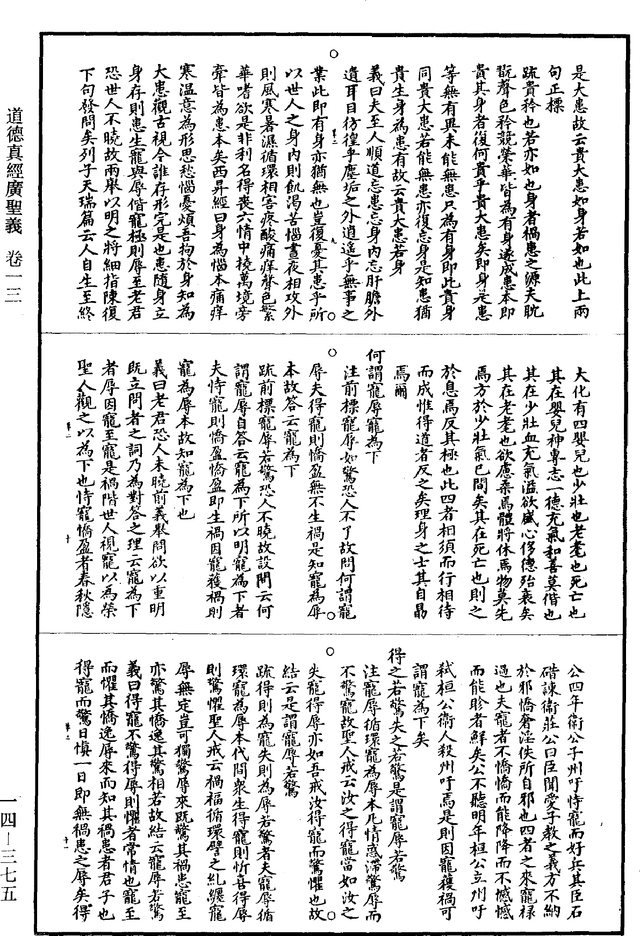 道德真經廣聖義　卷一三
一四—三七五
是大患故云貴大患如身若如也此上兩
句正標
疏貴矜也若亦如也身者禍患之源夫耽
翫聲色矜競榮華皆為有身遂成患本即
貴其身者復何貴乎貴大患矣即身是患
等無有異未能無患只為有身即此貴身
同貴大患若能無患亦復忘身是知患猶
貴生身為患有故云貴大患若身
義曰夫至人順道忘患忘身內忘肝膽外
遺耳目彷徨乎塵垢之外逍遙乎無事之
業此即有身亦猶無也豈復憂其患乎所
以世人之身內則飢渴苦惱晝夜相攻外
則風寒暑濕循環相害疼酸痛痒聲色繁
華嗜欲是非利名得喪六情中撓萬境旁
牽皆為患本矣西昇經曰身為惱本痛痒
寒溫意為形思愁惱憂煩吾拘於身知為
大患觀古視今誰存形完是也患隨身立
身存則患生寵與辱偕寵極則辱至老君
恐世人不曉故兩舉以明之將細指陳復
下句發問矣列子天瑞篇云人自生至終
大化有四嬰兒也少壯也老耄也死亡也
其在嬰兒神專志一德充氣和善莫偕也
其在少壯血充氣溢欲盛心侈德殆衰矣
其在老耄也欲慮柔焉體將休焉物莫先
焉方於少壯氣已間矣其在死亡也則之
於息焉反其極也此四者相須而行相待
而成惟得道者反之矣理身之士其自勗
焉爾
何謂寵辱寵為下
注前標寵辱如驚恐人不了故問何謂寵
辱夫得寵則憍盈無不生禍是知寵為辱
本故答云寵為下
疏前標寵辱若驚恐人不曉故設問云何
謂寵辱自答云寵為下所以明寵為下者
夫恃寵則憍盈憍盈即生禍因寵獲禍則
寵為辱本故知寵為下也
義曰老君恐人未曉前義舉問欲以重明
既立問者之詞乃為對答之理云寵為下
者辱因寵至寵是禍階世人視寵以為榮
聖人觀之以為下也恃寵憍盈者春秋隱
公四年衛公子州吁恃寵而好兵其臣石
碏諫衛莊公曰臣聞愛子教之義方不納
於邪憍奢淫佚所自邪也四者之來寵祿
過也夫寵者不憍憍而能降降而不憾憾
而能眕者鮮矣公不聽明年桓公立州吁
弒桓公衛人殺州吁焉是則因寵獲禍可
謂寵為下矣
得之若驚失之若驚是謂寵辱若驚
注寵辱循環寵為辱本凡情惑滯驚辱而
不驚寵故聖人戒云汝之得寵當如汝之
失寵得辱亦如吾戒汝得寵而驚懼也故
結云是謂寵辱若驚
疏得則為寵失則為辱若驚者夫寵辱循
環寵為辱本代間眾生得寵則忻喜得辱
則驚懼聖人戒云禍福循環譬之糺纏寵
辱無定豈可獨驚辱來既驚其禍患寵至
亦驚其憍逸其驚相若故結云寵辱若驚
義曰得寵不驚得辱則懼者常情也寵至
而懼其憍逸辱來而知其禍患者君子也
得寵而驚日慎一日即無禍患之辱矣得